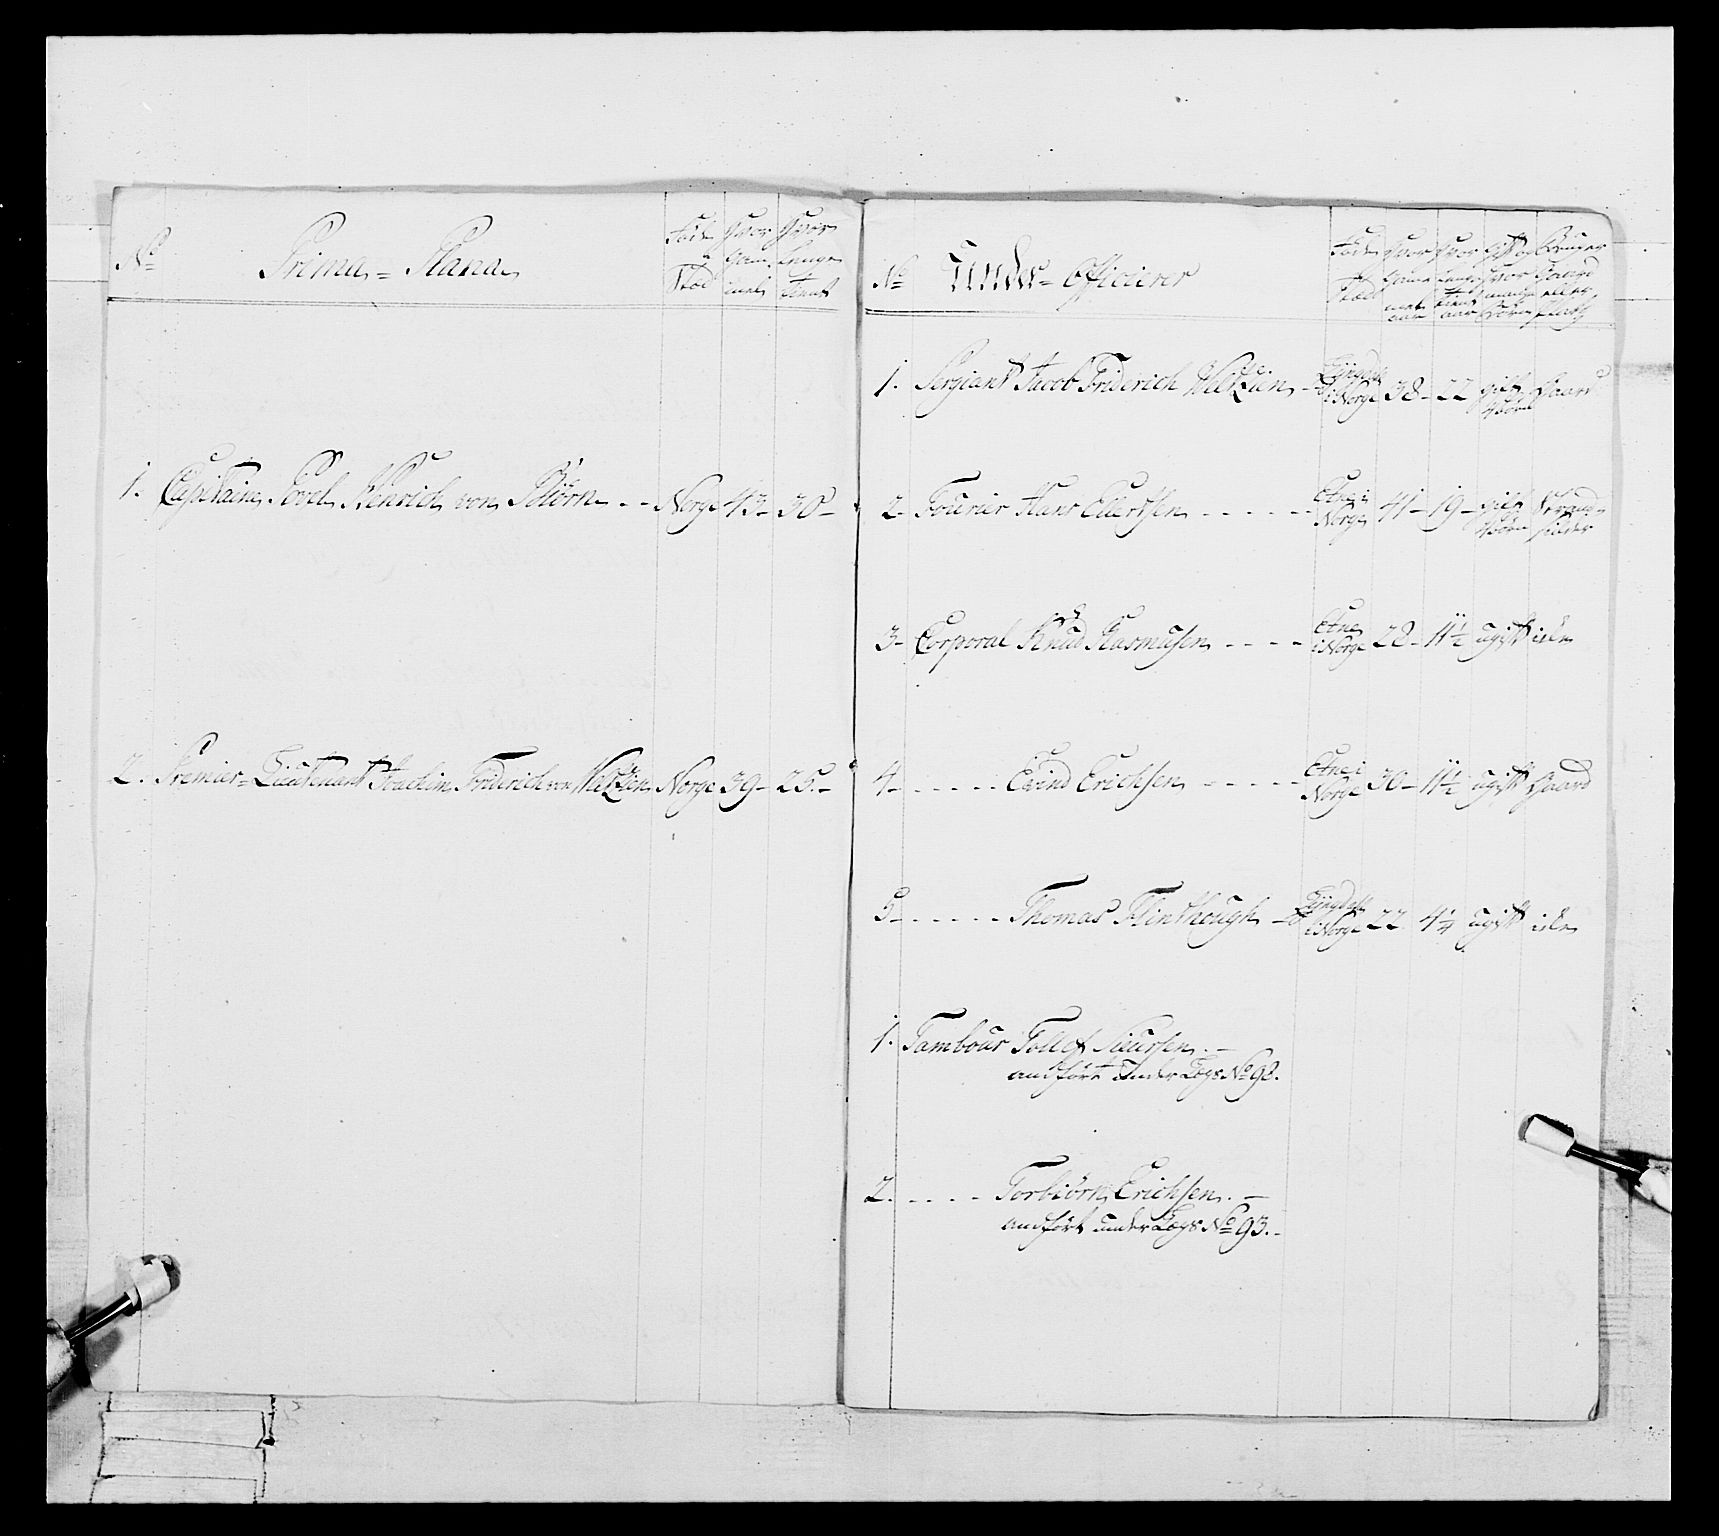 No Prima=Plana Føde Stæd Hvor Gam̅el Hvor Lenge tient
1. Capitaine Povel Henrich von Biörn -- Norge 43- 30-
2. Premier=Lieutenant Joachim Friderich von Weltzien Norge 39- 25.-
No Under=Officierer Føde Stæd Hvor Lenge tient aar Hvor mange Børn eller
1. Sergiant Jacob Friderich Weltzien - i Norge 38- 22 gift Gaard
2- Fourier Hans Ellertsen ------ Etne i Norge 41- 19- gift
3- Corporal Knud Rasmusen ---- Etne i Norge 28- 11½ ugift
4------ Evind Erichsen ----- Etne i Norge 30- 11½ ugift Gaard
5------ Thomas Flinthough - i Norge 22 4¼ ugift
1. Tambour Tollef Siursen.-
anført under Legs No 98.
2.---- Torbiörn Erichsen.-
anført under Legs No 93.-